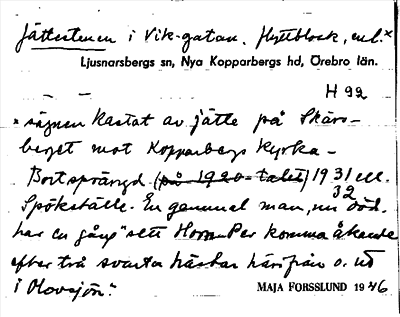 Jättestenen i Vik-gatan. Flyttblock, enl.x
Ljusnarsbergs sn, Nya Kopparbergs hd, Örebro län.
H 92
x sägnen kastat av jätte på Skärs-
berget mot Kopparbergs kyrka –
Bortsprängd (på 1920-talet) 1931 ell. 32
Spökställe. En gammal man, nu död.
har en gång "sett Horn-Per komma åkande
efter två svarta hästar härifrån o. ut
i Olovsjön."
MAJA FORSSLUND 1946